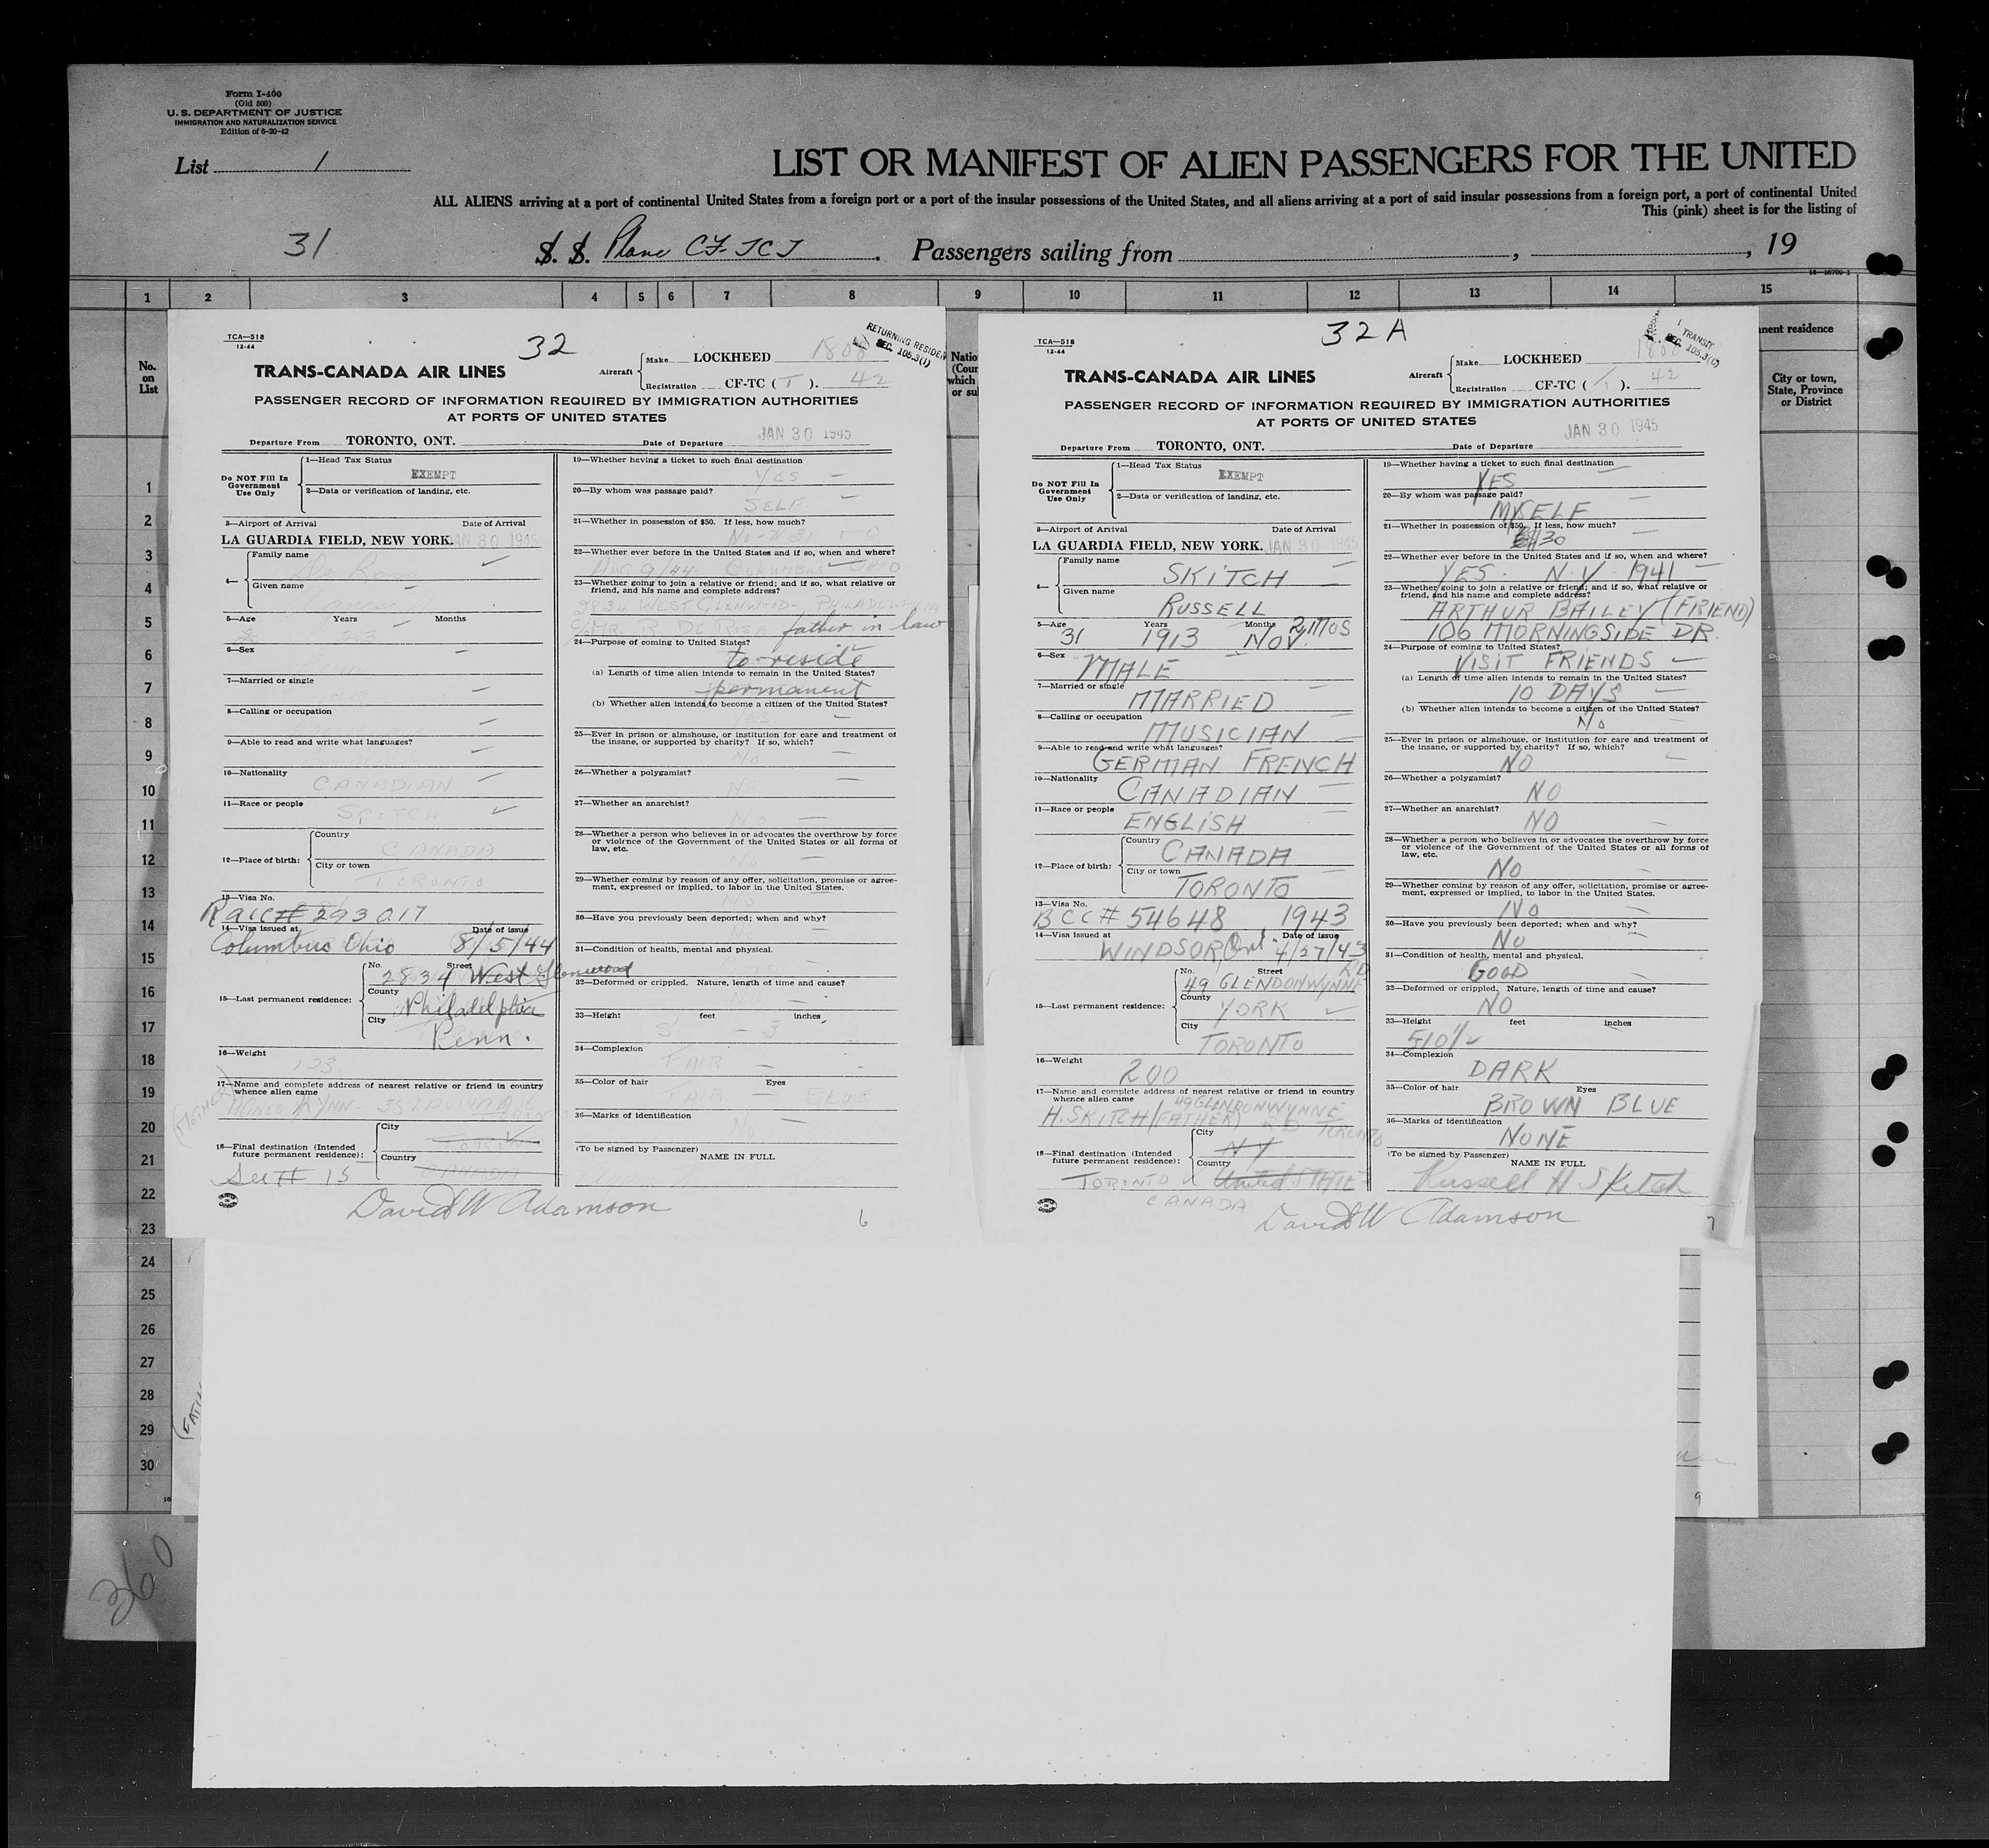 Form I-400
(Old 500)
U. S. DEPARTMENT OF JUSTICE
IMMIGRATION AND NATURALIZATION SERVICE
Edition of 6-20-42
List 1
LIST OR MANIFEST OF ALIEN PASSENGERS FOR THE UNITED
ALL ALIENS arriving at a port of continental United States from a foreign port or a port of the insular possessions of the United States, and all aliens arriving at a port of said insular possessions from a foreign port, a port of continental United
This (pink) sheet is for the listing of
31 S. S. Plane CF-TCT. Passengers sailing from , , 19
1 2 3 4 5 6 7 8 9 10 11 12 13 14 15
No.
on
List
1
2
3
4
5
6
7
8
9
10
11
12
13
14
15
16
17
18
19
20
21
22
23
24
25
26
27
28
29
30
360
TCA—518
12-44
32
RETURNING RESIDEN
SEC. 105.3(1)
TRANS-CANADA AIR LINES
Aircraft
Make LOCKHEED 1800
Registration CF-TC ( T ). 42
PASSENGER RECORD OF INFORMATION REQUIRED BY IMMIGRATION AUTHORITIES
AT PORTS OF UNITED STATES
Departure From TORONTO, ONT. Date of Departure JAN 30 1945
Do NOT Fill In
Government
Use Only
1—Head Tax Status
EXEMPT
2—Data or verification of landing, etc.
3—Airport of Arrival Date of Arrival
LA GUARDIA FIELD, NEW YORK. JAN 30 1945
4—
Family name
Given name
5—Age Years Months
23
6—Sex
7—Married or single
8—Calling or occupation
9—Able to read and write what languages?
10—Nationality
CANADIAN
11—Race or people
SCOTCH
12—Place of birth:
Country
CANADA
City or town
TORONTO
13—Visa No.
293017
14—Visa issued at Date of issue
Columbus Ohio 8/5/44
15—Last permanent residence:
No. Street
2834 West Glenwood
County
Philadelphia
City
Penn.
16—Weight
123
17—Name and complete address of nearest relative or friend in country
whence alien came
LYNN
18—Final destination (Intended
future permanent residence):
City
Country
CANADA
See # 15
David W Adamson
19—Whether having a ticket to such final destination
YES
20—By whom was passage paid?
SELF
21—Whether in possession of $50. If less, how much?
22—Whether ever before in the United States and if so, when and where?
AUG 9/44 COLUMBUS OHIO
23—Whether going to join a relative or friend; and if so, what relative or
friend, and his name and complete address?
2834 WEST GLENWOOD - PHILADELPHIA
father in law
24—Purpose of coming to United States?
to reside
(a) Length of time alien intends to remain in the United States?
permanent
(b) Whether alien intends to become a citizen of the United States?
YES
25—Ever in prison or almshouse, or institution for care and treatment of
the insane, or supported by charity? If so, which?
No
26—Whether a polygamist?
No
27—Whether an anarchist?
No
28—Whether a person who believes in or advocates the overthrow by force
or violence of the Government of the United States or all forms of
law, etc.
29—Whether coming by reason of any offer, solicitation, promise or agree-
ment, expressed or implied, to labor in the United States.
No
30—Have you previously been deported; when and why?
31—Condition of health, mental and physical.
32—Deformed or crippled. Nature, length of time and cause?
33—Height feet inches
5' - 3
34—Complexion
FAIR
35—Color of hair Eyes
FAIR BLUE
36—Marks of identification
No
(To be signed by Passenger)
NAME IN FULL
6
Natio
(Coun
which
or su
TCA—518
12-44
32 A
TRANSIT
SEC. 105.3(c)
TRANS-CANADA AIR LINES
Aircraft
Make LOCKHEED 1800
Registration CF-TC ( T ). 42
PASSENGER RECORD OF INFORMATION REQUIRED BY IMMIGRATION AUTHORITIES
AT PORTS OF UNITED STATES
Departure From TORONTO, ONT. Date of Departure JAN 30 1945
Do NOT Fill In
Government
Use Only
1—Head Tax Status
EXEMPT
2—Data or verification of landing, etc.
3—Airport of Arrival Date of Arrival
LA GUARDIA FIELD, NEW YORK. JAN 30 1945
4—
Family name
SKITCH
Given name
RUSSELL
5—Age Years Months 2 MOS
31 1913 NOV.
6—Sex
MALE
7—Married or single
MARRIED
8—Calling or occupation
MUSICIAN
9—Able to read and write what languages?
GERMAN FRENCH
10—Nationality
CANADIAN
11—Race or people
ENGLISH
12—Place of birth:
Country
CANADA
City or town
TORONTO
13—Visa No.
BCC # 54648 1943
14—Visa issued at Date of issue
WINDSOR, Ont. 4/27/43
15—Last permanent residence:
No. Street RD
49 GLENDONWYNNE
County
YORK
City
TORONTO
16—Weight
200
17—Name and complete address of nearest relative or friend in country
whence alien came 49 GLENDONWYNNE
H. SKITCH (FATHER) RD TORONTO
18—Final destination (Intended
future permanent residence):
City
NY
Country
United STATE
TORONTO
CANADA
David W Adamson
19—Whether having a ticket to such final destination
YES
20—By whom was passage paid?
MYSELF
21—Whether in possession of $50. If less, how much?
30
22—Whether ever before in the United States and if so, when and where?
YES. N.Y. 1941
23—Whether going to join a relative or friend; and if so, what relative or
friend, and his name and complete address?
ARTHUR BAILEY (FRIEND)
106 MORNINGSIDE DR.
24—Purpose of coming to United States?
VISIT FRIENDS
(a) Length of time alien intends to remain in the United States?
10 DAYS
(b) Whether alien intends to become a citizen of the United States?
No
25—Ever in prison or almshouse, or institution for care and treatment of
the insane, or supported by charity? If so, which?
NO
26—Whether a polygamist?
NO
27—Whether an anarchist?
NO
28—Whether a person who believes in or advocates the overthrow by force
or violence of the Government of the United States or all forms of
law, etc.
NO
29—Whether coming by reason of any offer, solicitation, promise or agree-
ment, expressed or implied, to labor in the United States.
NO
30—Have you previously been deported; when and why?
NO
31—Condition of health, mental and physical.
GOOD
32—Deformed or crippled. Nature, length of time and cause?
NO
33—Height feet inches
5 10 1/2
34—Complexion
DARK
35—Color of hair Eyes
BROWN BLUE
36—Marks of identification
NONE
(To be signed by Passenger)
NAME IN FULL
Russell H Skitch
7
nent residence
City or town,
State, Province
or District
9